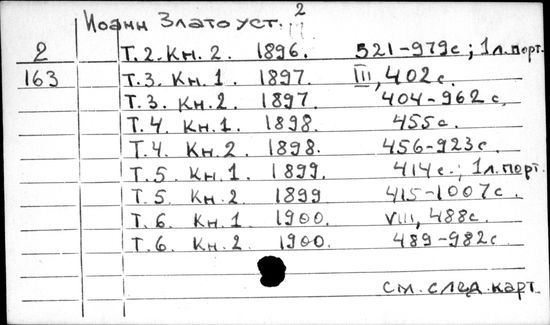 Иоанн Златоуст. 2
2 Т.2. Кн. 2. 1896. 521-979с; 1л.порт.
163 Т.3. Кн. 1. 1897. III, 402 с.
Т.3. Кн. 2. 1897. 404-962 с.
Т.4. Кн. 1. 1898. 455с.
Т.4. Кн. 2. 1898. 456-923с.
Т.5. Кн. 1. 1899. 414с.; 1л.порт.
Т.5. Кн. 2. 1899 415-1007с.
Т.6. Кн. 1 1900. VIII, 488с.
Т.6. Кн. 2 1900. 489-982с.
см. след. карт.